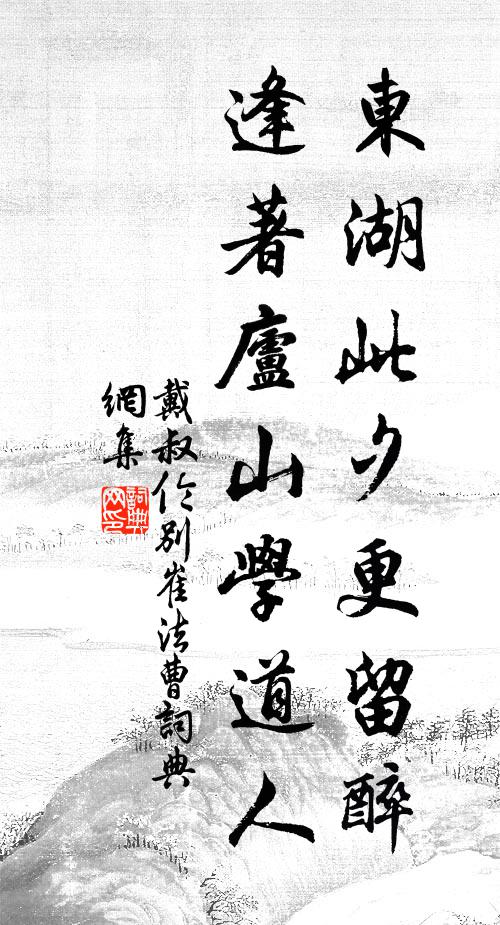 東湖此夕更留醉
逢著廬山學道人
戴叔伦别崔法曹詞典
網集
詞典
网印